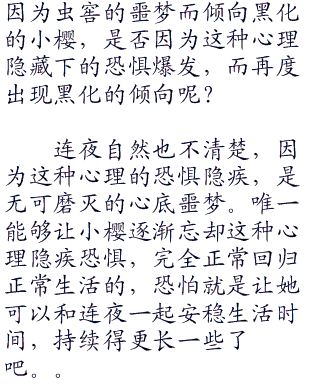 因为虫窖的噩梦而倾向黑化
的小樱，是否因为这种心理
隐藏下的恐惧爆发，而再度
出现黑化的倾向呢？
连夜自然也不清楚，因
为这种心理的恐惧隐疾，是
无可磨灭的心底噩梦。唯一
能够让小樱逐渐忘却这种心
理隐疾恐惧，完全正常回归
正常生活的，恐怕就是让她
可以和连夜一起安稳生活时
间，持续得更长一些了
吧。。